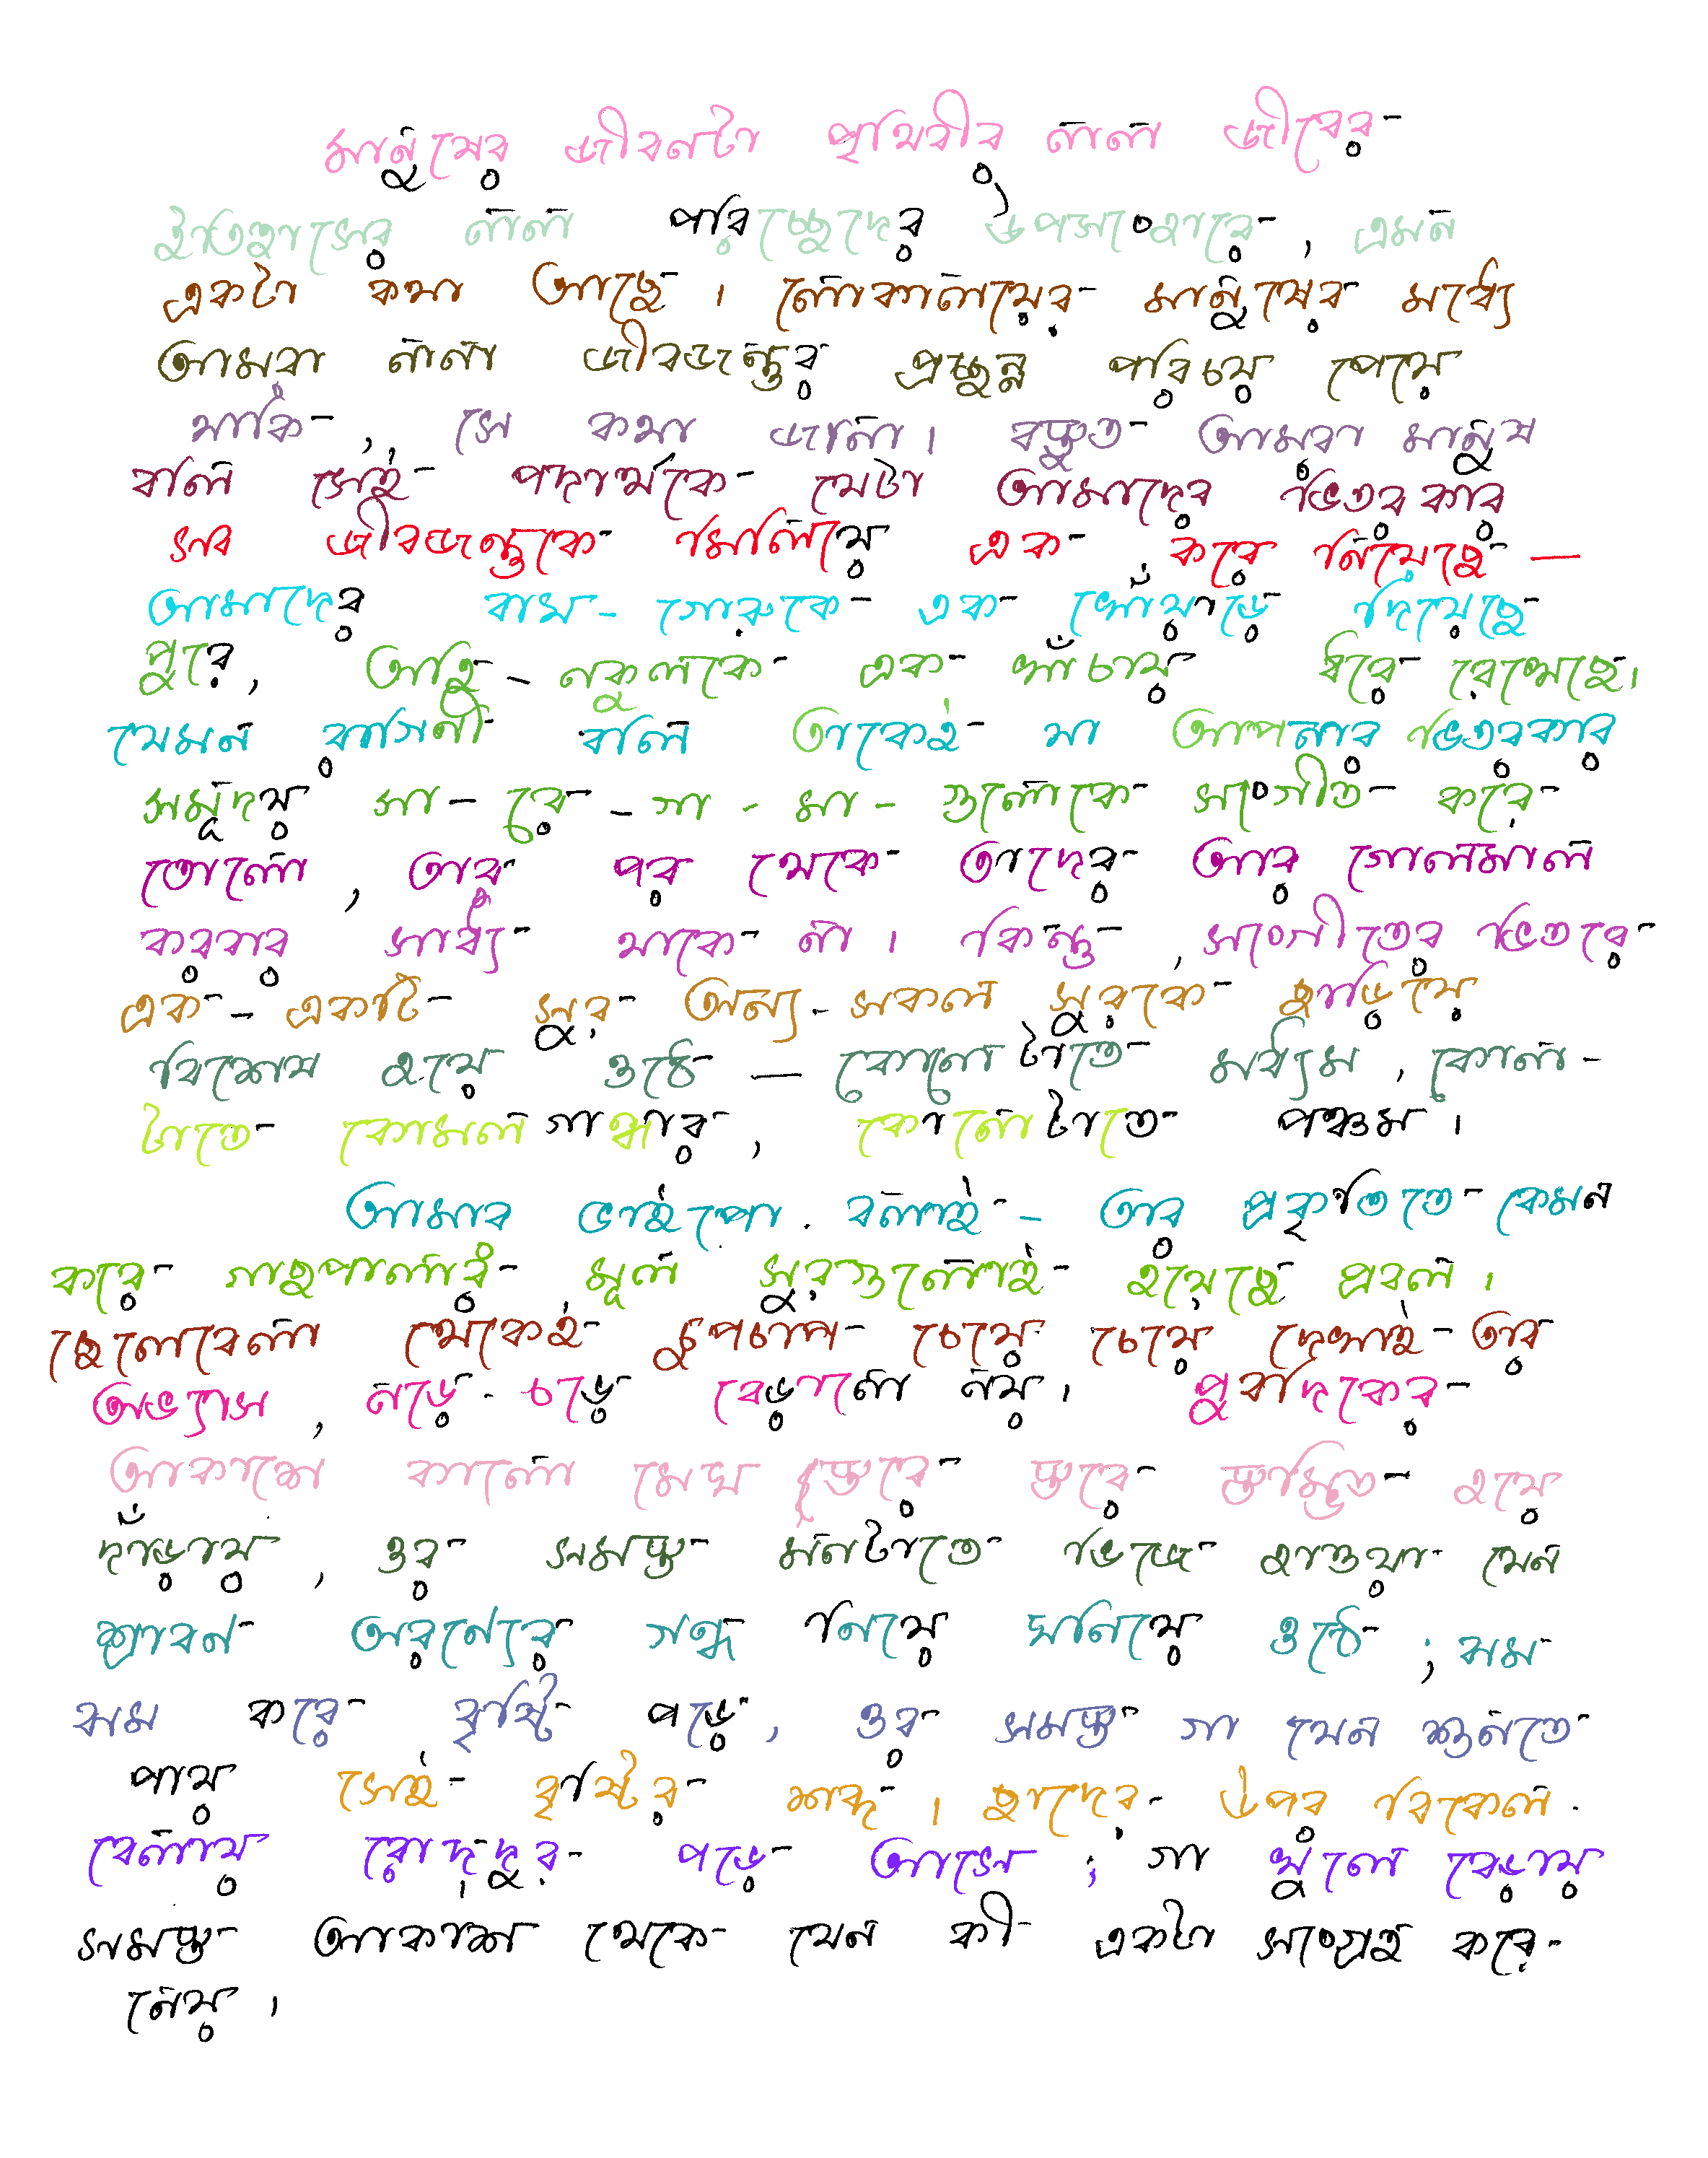 মানুষের জীবনটা পৃথিবীর নানা জীবের
ইতিহাসের নানা পরিচ্ছেদের উপসংহারে, এমন
একটা কথা আছে। লোকালয়ের মানুষের মধ্যে
আমরা নানা জীবজন্তুর প্রচ্ছন্ন পরিচয় পেয়ে
থাকি, সে কথা জানা। বস্তুত আমরা মানুষ
বলি সেই পদার্থকে যেটা আমাদের ভিতরকার
সব জীবজন্তুকে মিলিয়ে এক করে নিয়েছে —
আমাদের বাঘ-গোরুকে এক খোঁয়াড়ে দিয়েছে
পুরে, অহি-নকুলকে এক খাঁচায় ধরে রেখেছে।
যেমন রাগিণী বলি তাকেই যা আপনার ভিতরকার
সমুদয় সা-রে-গা-মা-গুলোকে সংগীত করে
তোলে, তার পর থেকে তাদের আর গোলমাল
করবার সাধ্য থাকে না। কিন্তু, সংগীতের ভিতরে
এক-একটি সুর অন্য-সকল সুরকে ছাড়িয়ে
বিশেষ হয়ে ওঠে — কোনোটাতে মধ্যম, কোনো-
টাতে কোমলগান্ধার, কোনোটাতে পঞ্চম।
আমার ভাইপো বলাই- তার প্রকৃতিতে কেমন
করে গাছপালার মূল সুরগুলোই হয়েছে প্রবল।
ছেলেবেলা থেকেই চুপচাপ চেয়ে চেয়ে দেখাই তার
অভ্যাস, নড়ে-চড়ে বেড়ানো নয়। পুবদিকের
আকাশে কালো মেঘ স্তরে স্তরে স্তম্ভিত হয়ে
দাঁড়ায়, ওর সমস্ত মনটাতে ভিজে হাওয়া যেন
শ্রাবণ অরণ্যের গন্ধ নিয়ে ঘনিয়ে ওঠে; ঝম
ঝম করে বৃষ্টি পড়ে, ওর সমস্ত গা যেন শুনতে
পায় সেই বৃষ্টির শব্দ। ছাদের উপর বিকেল
বেলায় রোদ্‌দুর পড়ে আসে; গা খুলে বেড়ায়
সমস্ত আকাশ থেকে যেন কী একটা সংগ্রহ করে
নেয়।